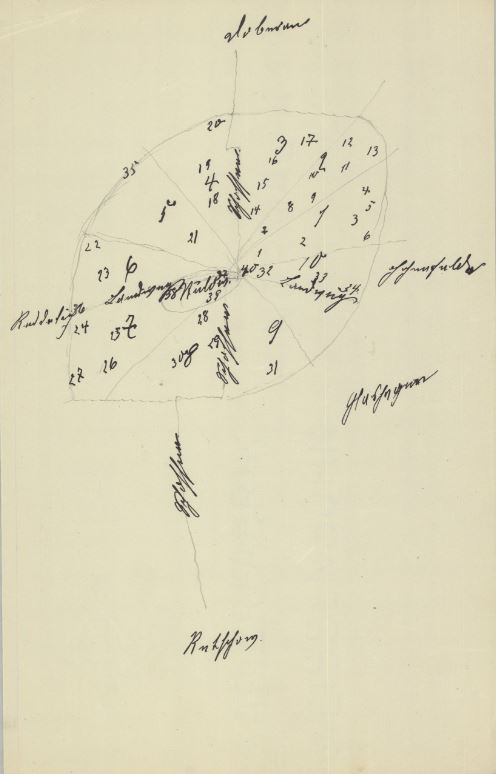 Doberan
20
3 17 12
13
16 9
10 11
35
19
4
18
15
Chaussee
5
14
8 9
4
5
1
3
6
21
2
2
22
1
23 6
10
32
Landweg
33
34
Hohenfelde
Landweg
Mühle
36
39
Reddelich
24
7
28
29
9
Chaussee
30 8
26
27
31
Glashagen
Chaussee
Retschow.